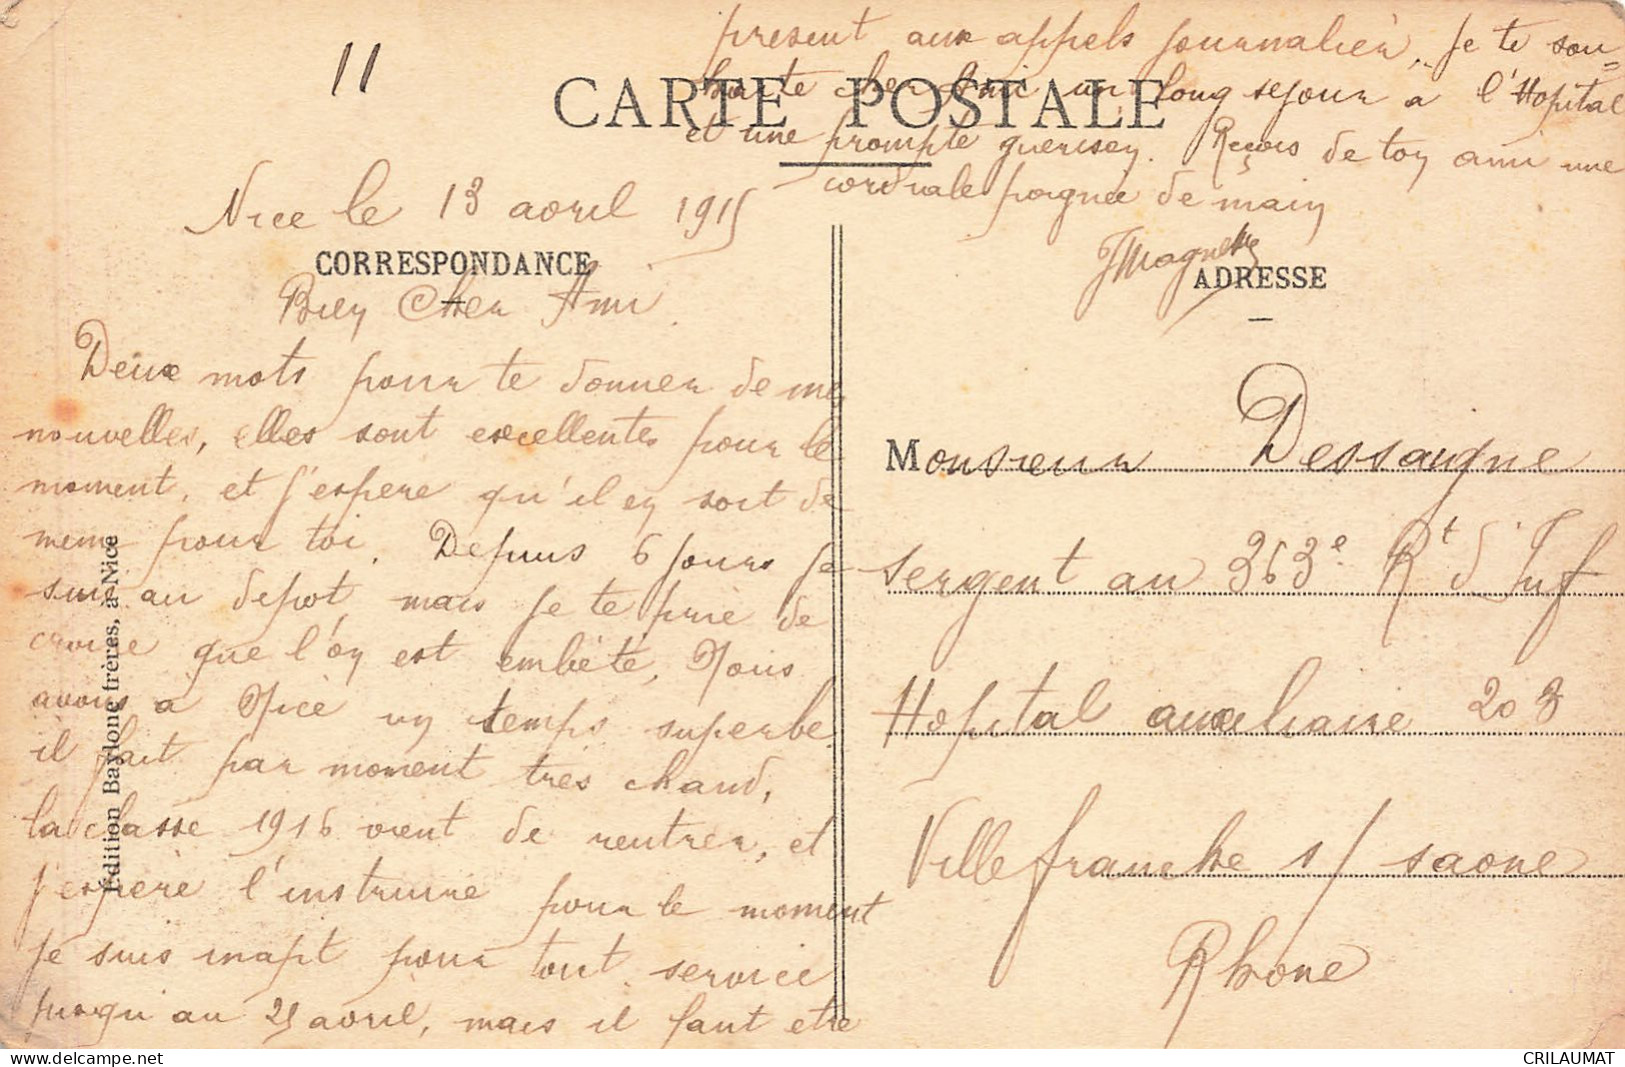 11
CARTE POSTALE
Nice le 13 avril 1915
CORRESPONDANCE
Bien Cher Ami
Deux mots pour te donner de mes
nouvelles, elles sont excellentes pour le
moment, et j'espere qu'il en soit de
meme pour toi. Depuis 6 jours je
suis au depot, mais je te prie de
croire que l'on est embêté, Nous
avons a Nice un temps superbe
il fait par moment tres chaud,
la classe 1916 vient de rentrer, et
j'espère l'instruire pour le moment
je suis inapt pour tout service
jusqu'au 25 avril, mais il faut etre
present aux appels journalier. Je te sou=
haite cher Ami un long sejour a l'Hopital
et une prompte guerisen. Reçois de ton ami une
cordiale poignée de main
ADRESSE
Monsieur Dessaigne
sergent au 363e Rt d'Inf
Hopital auxeliaire 203
Villefranche s/ saone
Rhone
Edition Baylone frères, à Nice
hu le petit monde
delcampe.net
CRILAUMAT